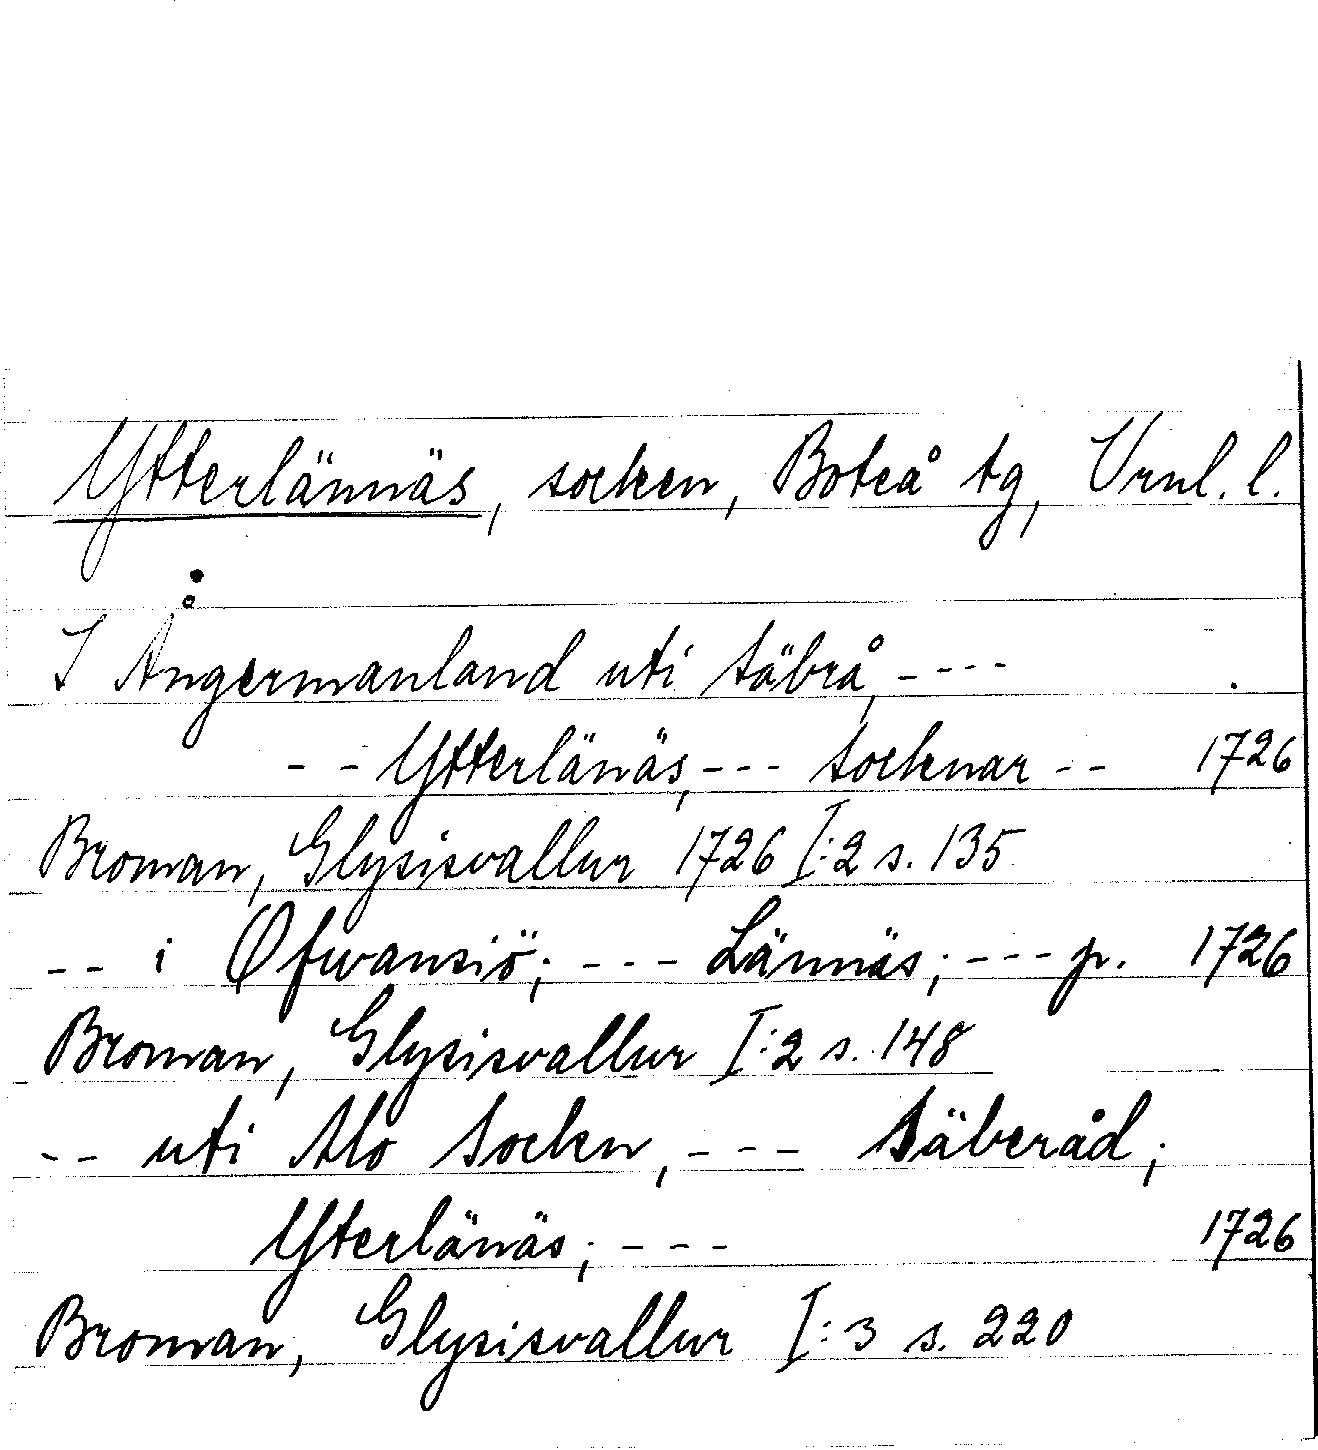 Ytterlännäs, socken, Boteå tg, Vrnl. l.
I Ångermanland uti Säbrå, ---
-- Ytterlänäs, --- Socknar -- 1726
Broman, Glysisvallur 1726 I:2 s. 135
-- i Øfwansiö; --- Lännäs; --- p. 1726
Broman, Glysisvallur I:2 s. 148
-- uti Alo Sockn, --- Säberåd;
Yterlänäs; --- 1726
Broman, Glysisvallur I:3 s. 220